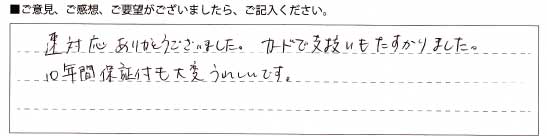 ■ご意見、ご感想、ご要望がございましたら、ご記入ください。
速対応ありがとうございました。カードで支払いもたすかりました。
10年間保証付も大変うれしいです。